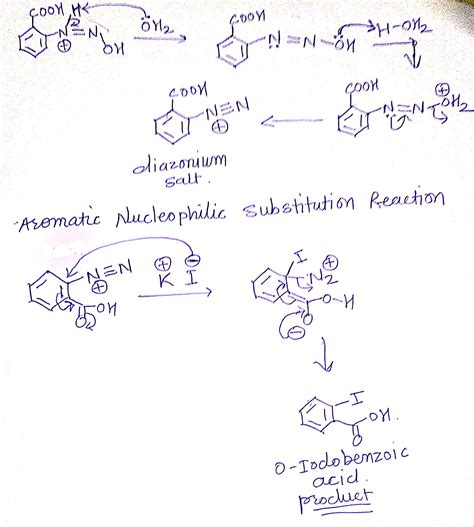 COOH H
N=N-OH
⊕
ÖH2
COOH
N=N-ÖH
H-OH2
⊕
COOH
N≡N
⊕
COOH
N=N-OH2
⊕
diazonium
salt.
Aromatic Nucleophilic Substitution Reaction
N≡N
⊕
OH
O
⊕ ⊖
K I
I
⊕
N2
O-H
O
⊖
I
OH.
O
O-Iodobenzoic
acid.
product